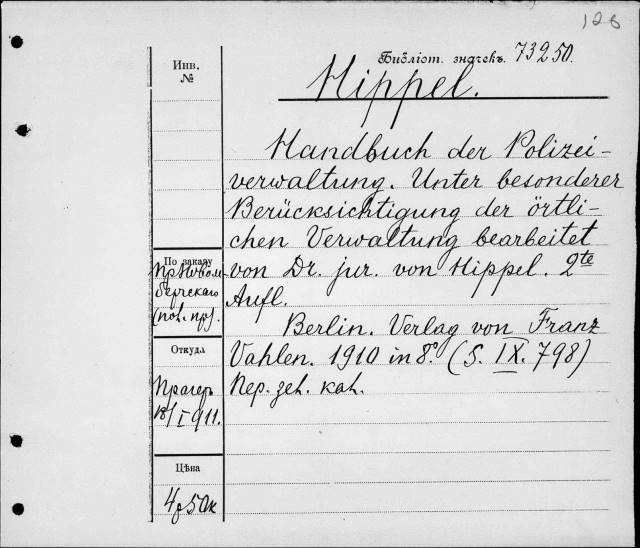 126
Библіот. значекъ. 73250.
Инв.
№
Hippel.
Handbuch der Polizei-
verwaltung. Unter besonderer
Berücksichtigung der örtli-
chen Verwaltung bearbeitet
von Dr. jur. von Hippel. 2te
Aufl.
Berlin. Verlag von Franz
Vahlen. 1910 in 8°. (S. IX. 798)
Пер. зел. кал.
По заказу
бергскаго
(пол. пр).
Откуда
Прагеръ
18/I 911.
Цѣна
4 р 50 к